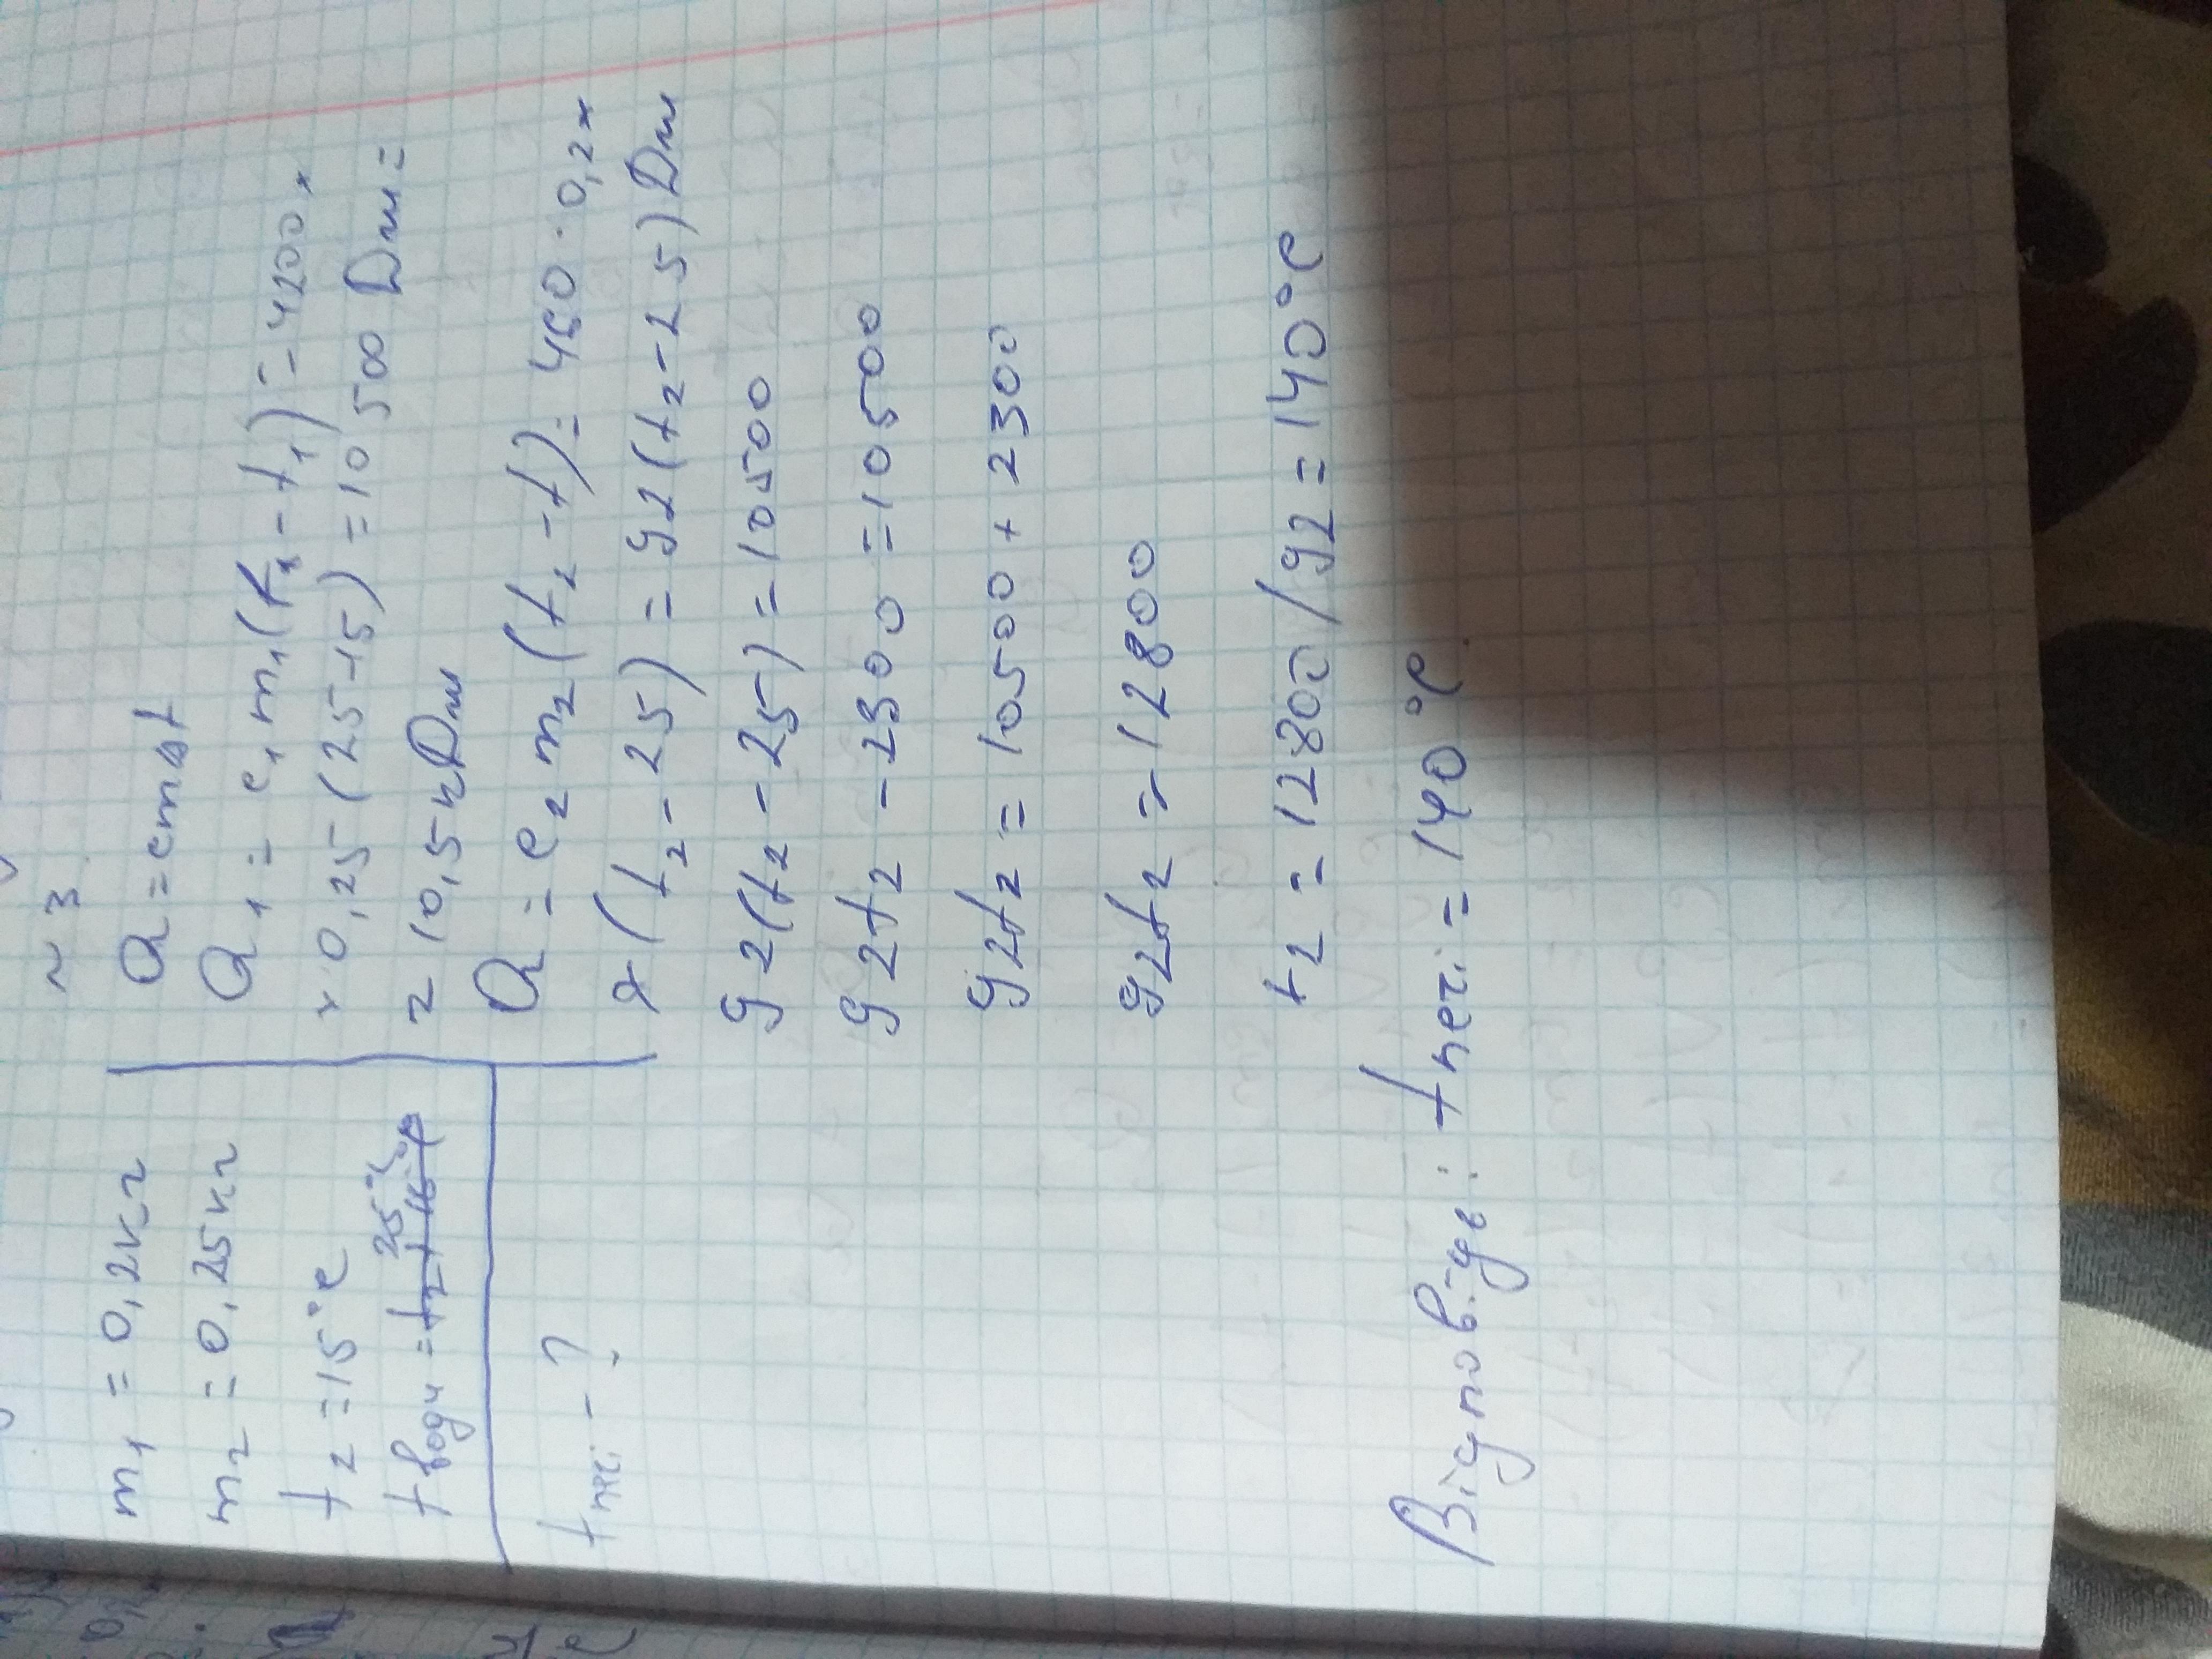 №3
m₁ = 0,2кг
m₂ = 0,25кг
t₂ = 15°C
t води = 25°C
tпечі - ?
Q = cmΔt
Q₁ = c₁m₁(t₂ - t₁) = 4200 ×
× 0,25 (25-15) = 10 500 Дж =
= 10,5 кДж
Q = c₂m₂(t₂ - t) = 460 · 0,2 ×
× (t₂ - 25) = 92(t₂ - 25) Дж
92(t₂ - 25) = 10500
92t₂ - 2300 = 10500
92t₂ = 10500 + 2300
92t₂ = 12800
t₂ = 12800/92 = 140°C
Відповідь: tпечі = 140°C